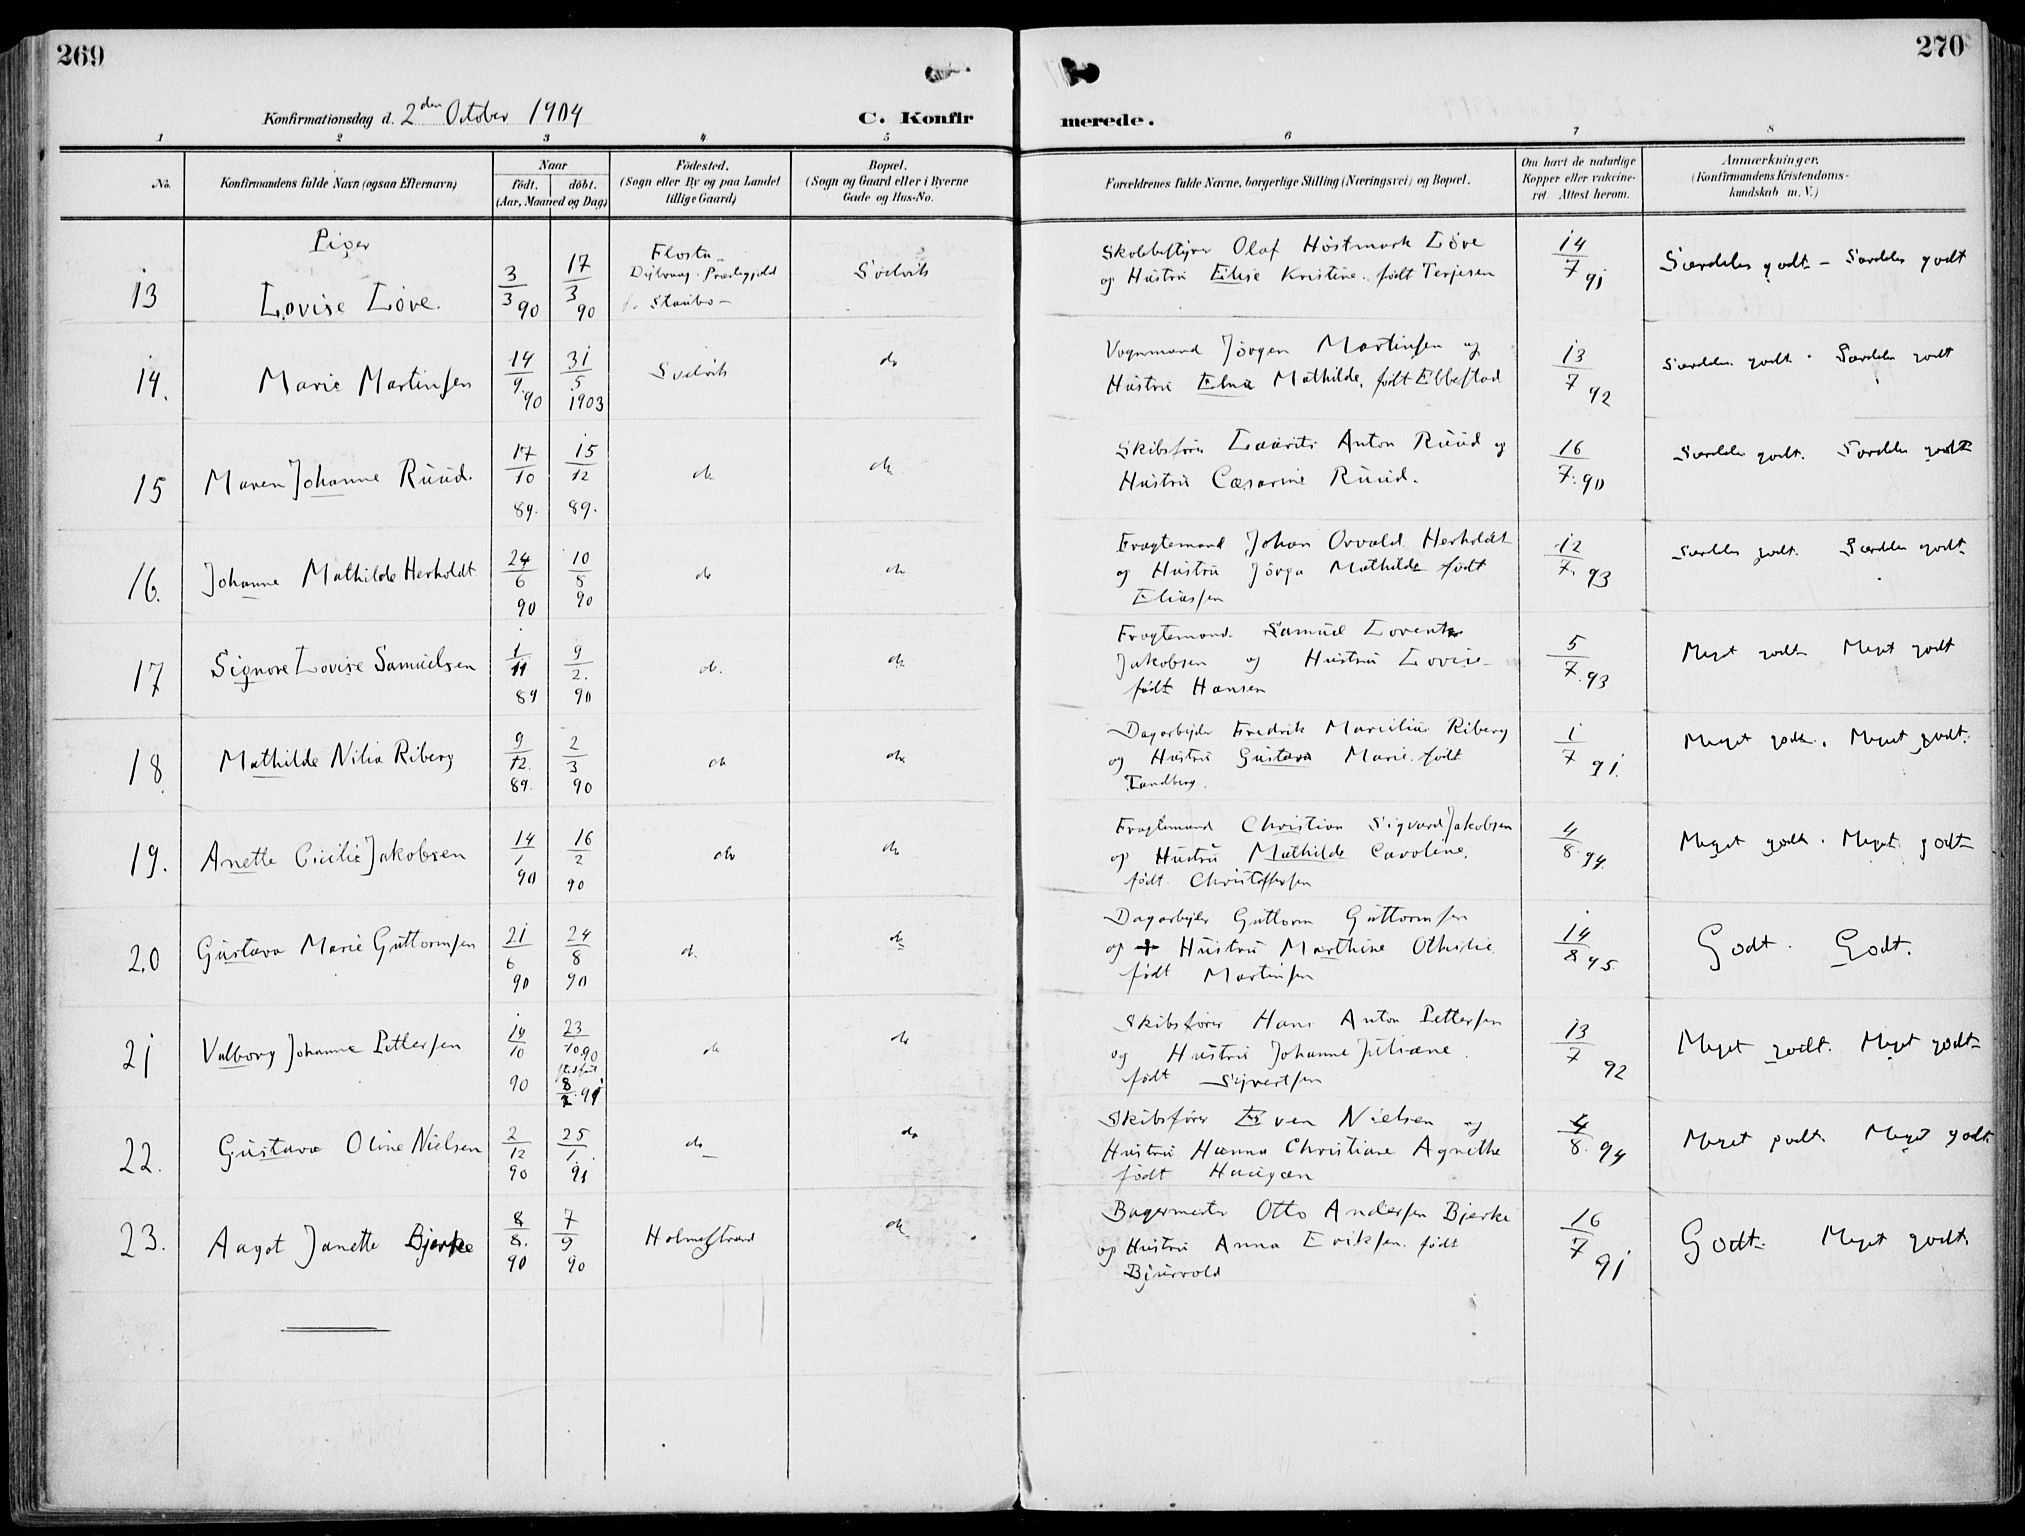 269
Konfirmationsdag d. 2den October 1904
C. Konfir
1 2 3 4 5
No.
Konfirmandens fulde Navn (ogsaa Efternavn)
Naar
födt. döbt.
(Aar, Maaned og Dag)
Födested.
(Sogn eller By og paa Landet
tillige Gaard)
Bopæl.
(Sogn og Gaard eller i Byerne
Gade og Hus-No.
Piger
13 Lovise Löve. 3/3 90 17/3 90 Svelvik
14. Marie Martinsen 14/9. 90 31/5 1903 Svelvik do
15 Maren Johanne Ruud. 17/10 89. 15/12 89. do do
16. Johanne Mathilde Herholdt 24/6 90 10/8 90 do do
17 Signore Lovise Samuelsen 1/11 89 9/2. 90 do. do
18. Mathilde Nilia Riberg 9/12. 89. 2/3 90 do do
19. Anette Cicilie Jakobsen 14/1 90 16/2 90 do do
20 Gustava Marie Guttormsen 21/6 90 24/8 90 do. do
21 Valborg Johanne Pettersen 14/10 90 23/10 90 8/2 91 do do
22. Gustava Oline Nielsen 2/12 90 25/1. 91 do do
23. Aagot Janette Bjerke 8/8. 90 7/9 90 Holmestrand do
270
merede.
6 7 8
Forældrenes fulde Navne, borgerlige Stilling (Næringsvei) og Bopæl.
Om havt de naturlige
Kopper eller vakcine-
ret Attest herom.
Anmærkninger.
(Konfirmandens Kristendoms-
kundskab m. V.)
Skolebestyrer Olaf Höstmark Löve
og Hustru Elise Kristine. født Terjesen 14/7 91 Særdeles godt - Særdeles godt
Vognmand Jörgen Martinsen og
Hustru Elna Mathilde, født Ebbestad 13/7 92 Særdeles godt. Særdeles godt
Skibsförer Laurits Anton Ruud og
Hustru Cæsarine Ruud. 16/7. 90 Særdeles godt. Særdeles godt
Fragtemand Johan Osvald Herholdt
og Hustru Jörga Mathilde født
Eliassen 12/7. 93 Særdeles godt. Særdeles godt
Fragtemand Samuel Lorents
Jakobsen og Hustru Lovise
født Hansen 5/7. 93 Meget godt Meget godt
Dagarbejder Fredrik Marcilius Riberg
og Hustru Gustava Marie. født
Tandberg. 1/7 91. Meget godt. Meget godt.
Fragtemand Christian Sigvard Jakobsen
og Hustru Mathilde Caroline.
født Christoffersen 4/8. 94. Meget godt. Meget godt
Dagarbejder Guttorm Guttormsen
og + Hustru Marthine Othilie
født Martinsen 14/8 95. Godt. Godt.
Skibsförer Hans Anton Pettersen
og Hustru Johanne Juliane.
født Sivertsen 13/7 92 Meget godt. Meget godt
Skibsförer Even Nielsen og
Hustru Hanna Christiane Agnethe
født Haugan 4/8. 94 Meget godt. Meget godt.
Bagermester Otto Andersen Bjerke
og Hustru Anna Eriksen. født
Bjurvold 16/7 91 Godt. Meget godt.